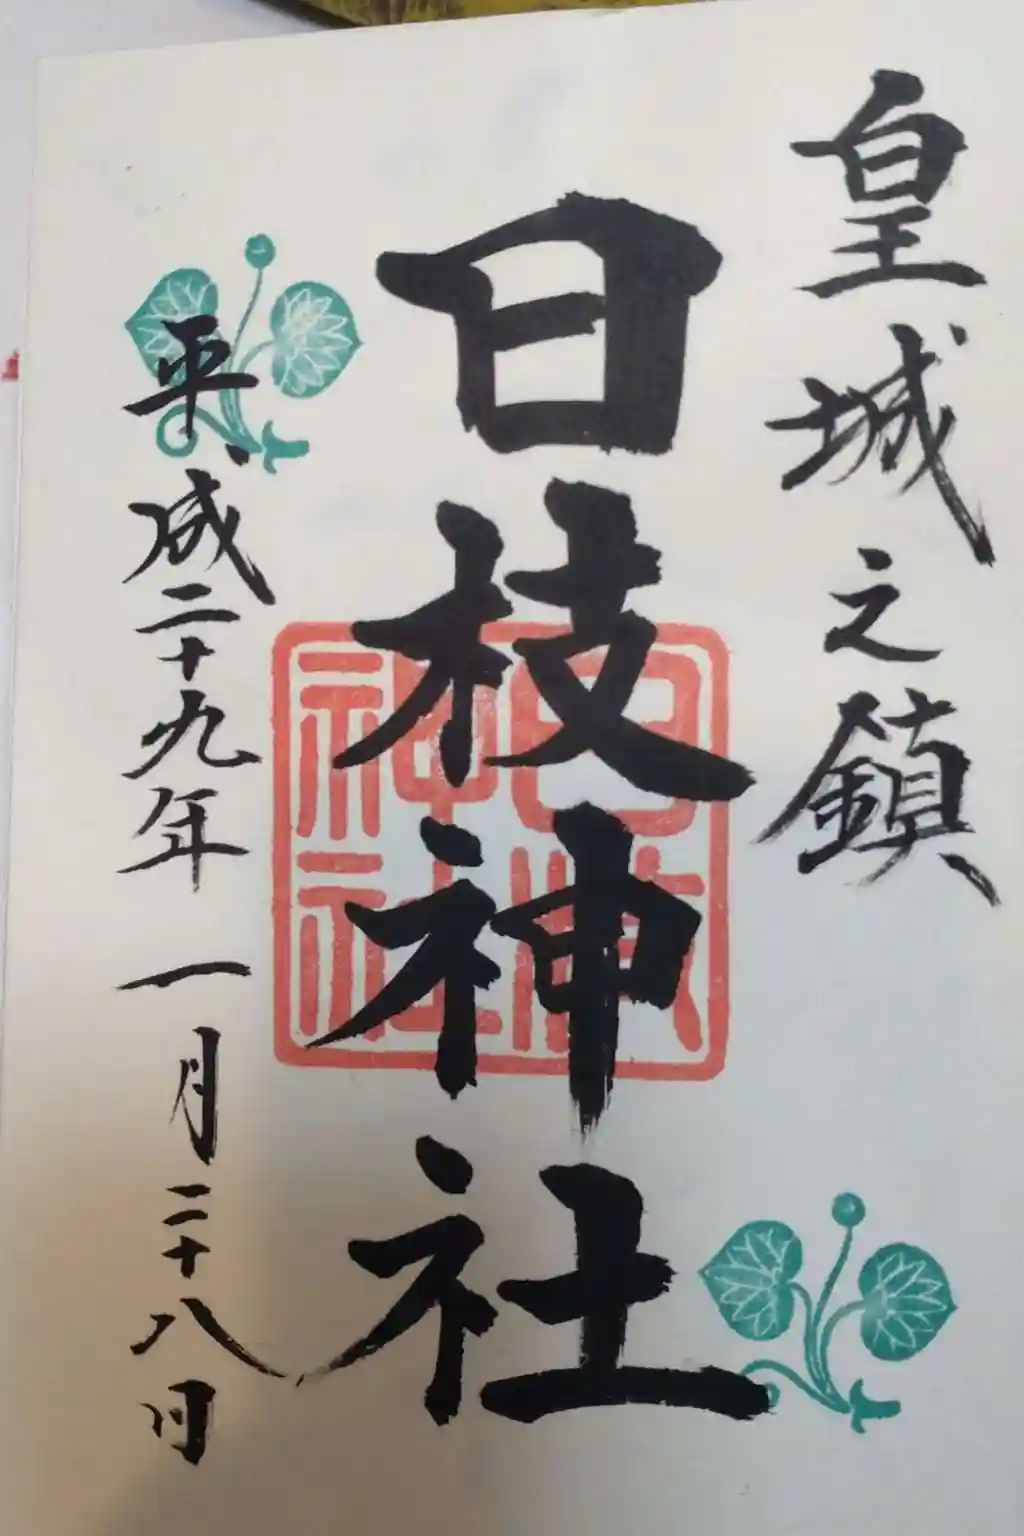 皇城之鎮
日枝神社
平成二十九年一月二十八日
日枝
神社